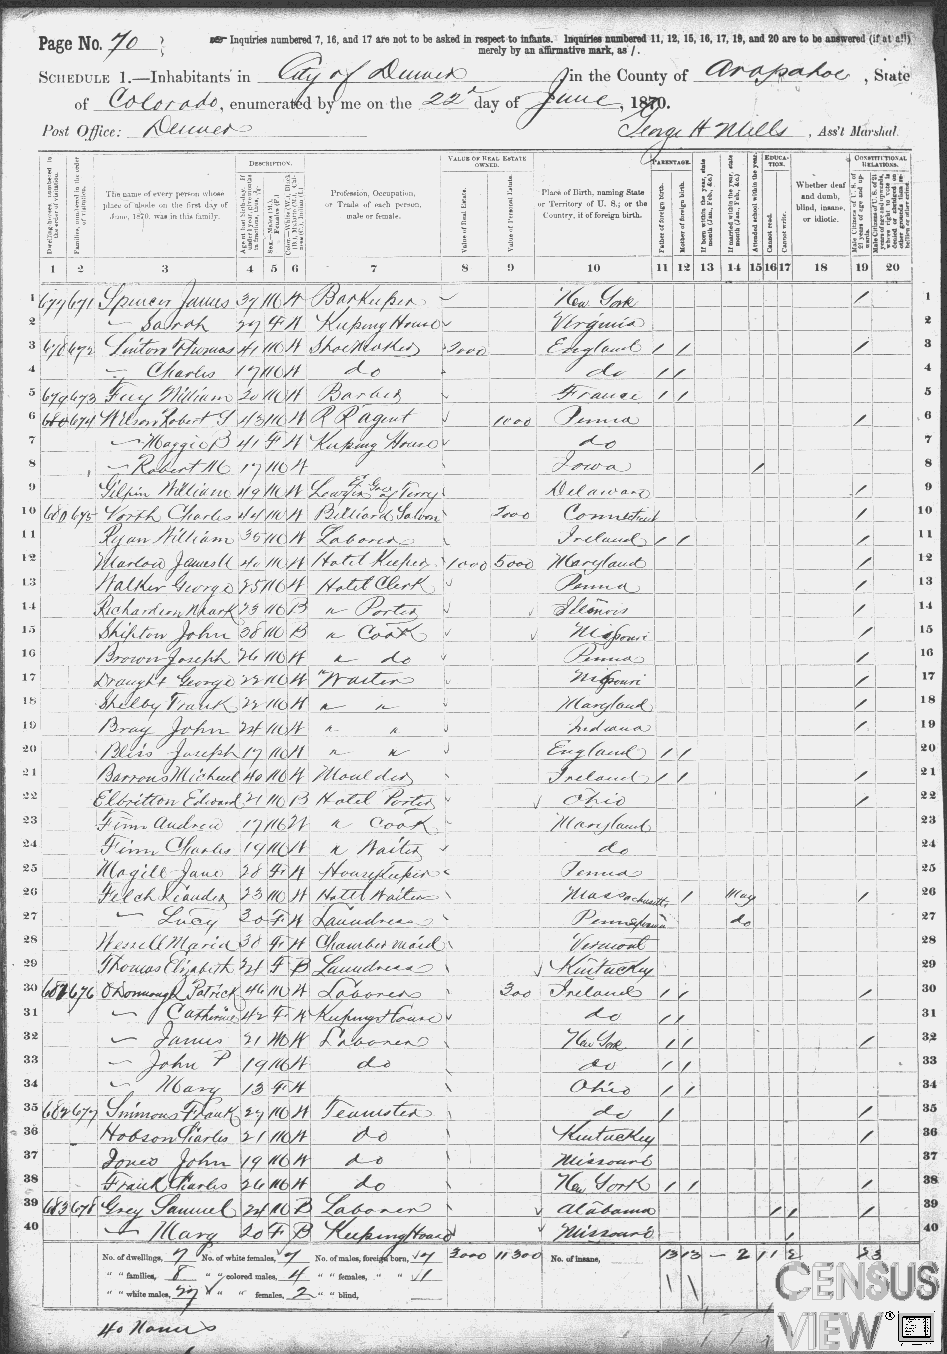 Page No. 70
Inquiries numbered 7, 16, and 17 are not to be asked in respect to infants. Inquiries numbered 11, 12, 15, 16, 17, 19, and 20 are to be answered (if at all)
merely by an affirmative mark, as /.
SCHEDULE 1.—Inhabitants in City of Denver, in the County of Arapahoe, State
of Colorado, enumerated by me on the 22d day of June, 1870.
Post Office: Denver George H Mills, Ass't Marshal.
DESCRIPTION. VALUE OF REAL ESTATE OWNED. PARENTAGE. EDUCATION. CONSTITUTIONAL RELATIONS.
Dwelling-houses, numbered in the order of visitation.
Families, numbered in the order of visitation.
The name of every person whose place of abode on the first day of June, 1870, was in this family.
Profession, Occupation, or Trade of each person, male or female.
Value of Real Estate.
Value of Personal Estate.
Place of Birth, naming State or Territory of U. S.; or the Country, if of foreign birth.
Father of foreign birth.
Mother of foreign birth.
Attended school within the year.
Cannot read.
Cannot write.
Whether deaf and dumb, blind, insane, or idiotic.
1 2 3 4 5 6 7 8 9 10 11 12 13 14 15 16 17 18 19 20
1 677 671 Spencer James 37 M W Barkeeper New York / 1
2 — Sarah 27 F W Keeping House Virginia 2
3 678 672 Linton Thomas 41 M W Shoemaker 2000 England / / / 3
4 — Charles 17 M W do do / / 4
5 679 673 Fay William 20 M W Barber France / / 5
6 680 674 Wilson Robert G 43 M W R R agent 1000 Penna / 6
7 — Maggie B 41 F W Keeping House do 7
8 — Robert M 17 M W Iowa / 8
9 Gilpin William 49 M W Lawyer Ex Gov of Terry Delaware / 9
10 681 675 North Charles 44 M W Billiard Saloon 2000 Connecticut / 10
11 Ryan William 35 M W Laborer Ireland / / / 11
12 Marlow James 40 M W Hotel Keeper 1000 5000 Maryland / 12
13 Walker George 25 M W Hotel Clerk Penna / 13
14 Richardson Mark 23 M B " Porter Illinois / 14
15 Shipton John 38 M B " Cook Missouri / 15
16 Brown Joseph 26 M W " do Penna / 16
17 Draught George 22 M W " Waiter Missouri / 17
18 Shelby Frank 22 M W " " Maryland / 18
19 Bray John 24 M W " " Indiana / 19
20 Bliss Joseph 17 M W " " England / / 20
21 Barrons Michael 40 M W Moulder Ireland / / / 21
22 Elbritton Edward 21 M B Hotel Porter Ohio / 22
23 Finn Andrew 17 M W " Cook Maryland 23
24 Finn Charles 19 M W " Waiter do 24
25 Magill Jane 28 F W Housekeeper Penna 25
26 Felch Leander 23 M W Hotel Waiter Massachusetts / May / 26
27 — Lucy 30 F W Laundress Pennsylvania do 27
28 Wessell Maria 30 F W Chambermaid Vermont 28
29 Thomas Elizabeth 24 F B Laundress Kentucky 29
30 676 Patrick 46 M W Laborer 300 Ireland / / / 30
31 — Catherine 42 F W Keeping House do / / 31
32 — James 21 M W Laborer New York / / / 32
33 — John P 19 M W do do / / 33
34 — Mary 13 F W Ohio / / 34
35 682 677 Simmons Frank 27 M W Teamster do / / 35
36 Hobson Charles 21 M W do Kentucky / 36
37 Jones John 19 M W do Missouri 37
38 Frank Charles 26 M W do New York / / / 38
39 683 678 Grey Samuel 24 M B Laborer Alabama / / / 39
40 — Mary 20 F B Keeping House Missouri / 40
No. of dwellings, 7 No. of white females, 7 No. of males, foreign born, 7 3000 11300 No. of insane, 13 13 – 2 1 1 2 23
" " families, 8 " " colored males, 4 " " females, " " 1
" " white males, 27 " " females, 2 " " blind,
40 Names
CENSUS
VIEW®